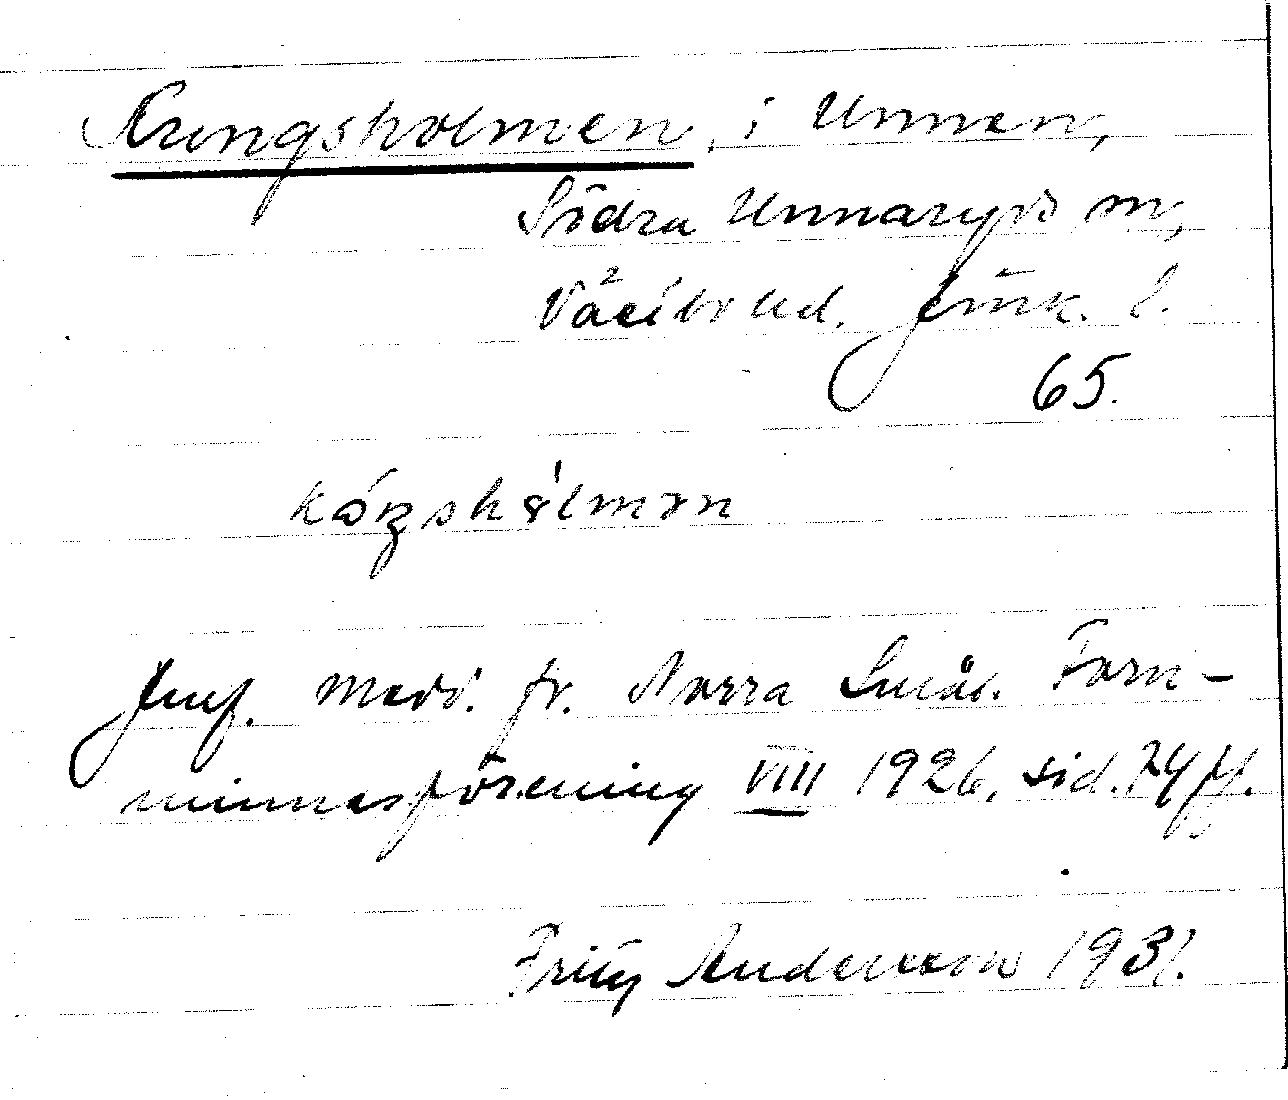 Kungsholmen, i Unnen,
Södra Unnaryds sn,
Västbo hd. Jönk. l.
65.
kóŋshòlmən
Jmf. Medd. fr. Norra Smål. Forn-
minnesförening VIII 1926, sid. 74 ff.
Fritz Andersson 1931.